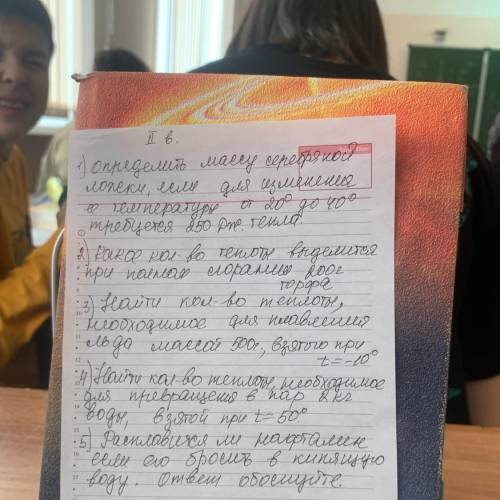 II в.
1) Определить массу серебряной
ложки, если для изменения
её температуры от 20° до 40°
требуется 250 Дж. тепла.
2) Какое кол-во теплоты выделится
при полном сгорании 200г
торфа
3) Найти кол-во теплоты,
необходимое для плавления
льда массой 500г, взятого при
t=-10°
4) Найти кол-во теплоты, необходимое
для превращения в пар 2 кг
воды, взятой при t=50°
5) Расплавится ли нафталин
если его бросить в кипящую
воду. Ответ обоснуйте.